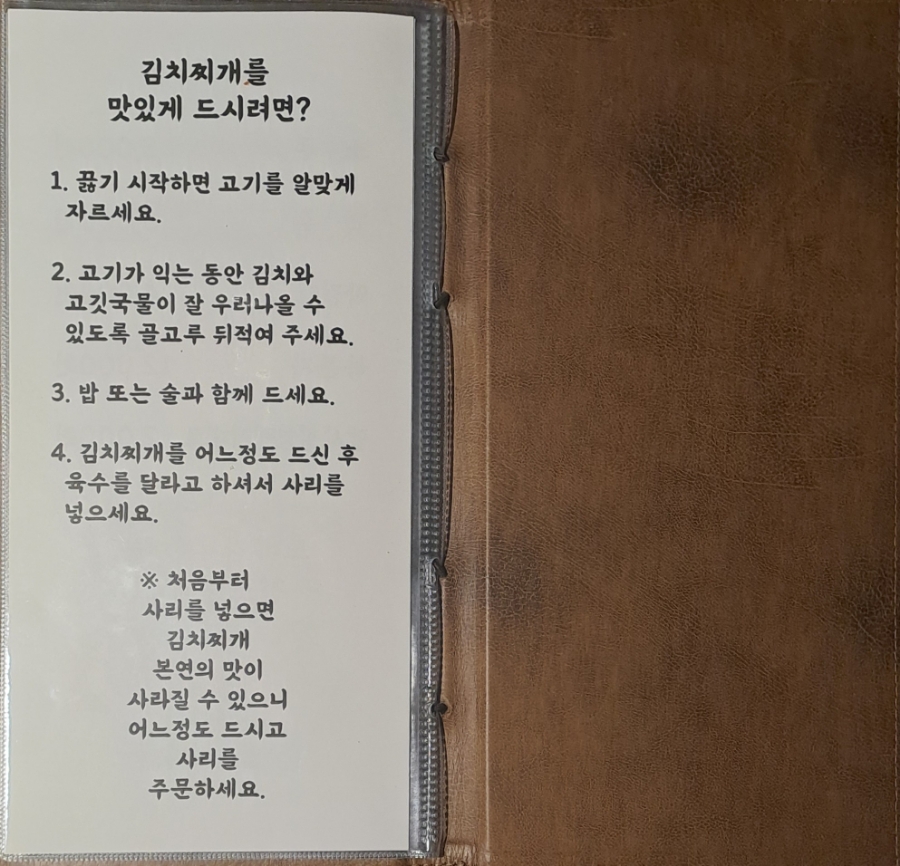 김치찌개를
맛있게 드시려면?
1. 끓기 시작하면 고기를 알맞게
자르세요.
2. 고기가 익는 동안 김치와
고깃국물이 잘 우러나올 수
있도록 골고루 뒤적여 주세요.
3. 밥 또는 술과 함께 드세요.
4. 김치찌개를 어느정도 드신 후
육수를 달라고 하셔서 사리를
넣으세요.
※ 처음부터
사리를 넣으면
김치찌개
본연의 맛이
사라질 수 있으니
어느정도 드시고
사리를
주문하세요.